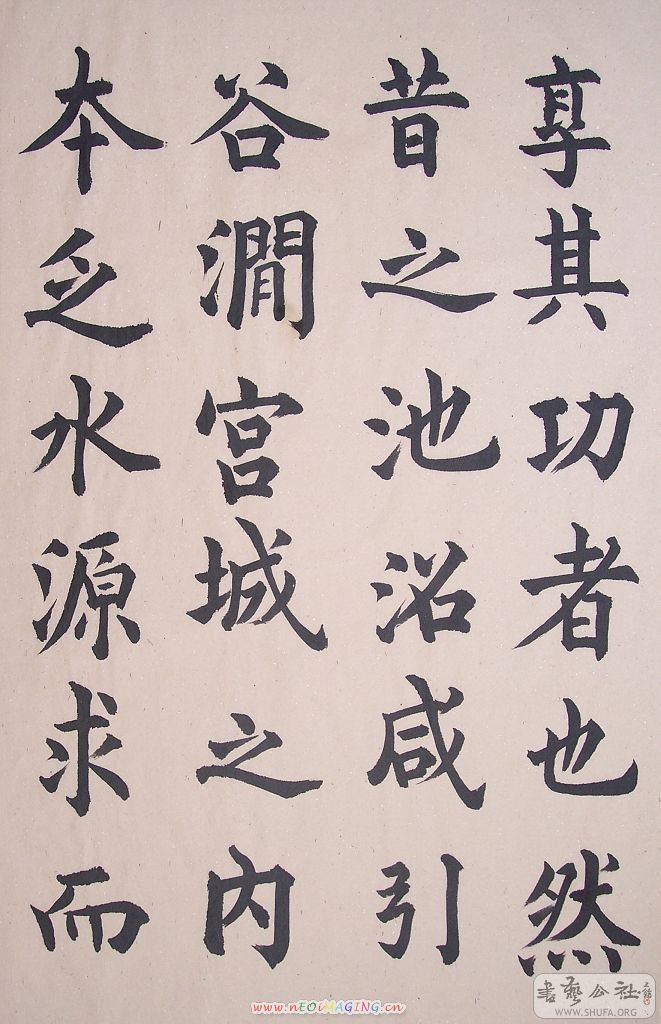 享其功者也然
昔之池沼咸引
谷澗宮城之内
本乏水源求而
書藝公社
WWW.SHUFA.ORG
www.nEOiMAGING.cn